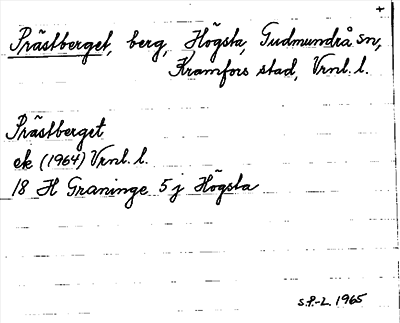 +
Prästberget, berg, Högsta, Gudmundrå sn,
Kramfors stad, Vrnl. l.
Prästberget
ek (1964) Vrnl. l.
18 H Graninge 5 j Högsta
S.P.-L. 1965